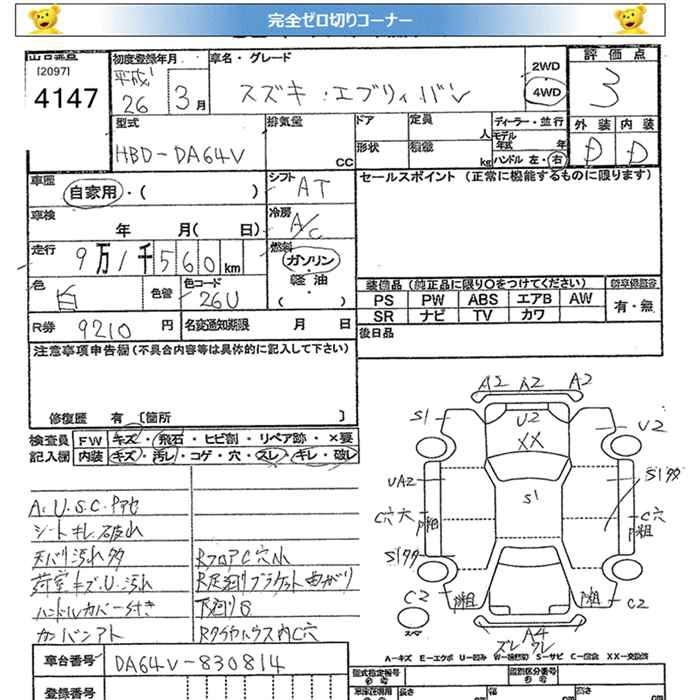 完全ゼロ切りコーナー
出品番号
[2097]
4147
初度登録年月
平成
26 3月
車名・グレード
スズキ・エブリィバン
2WD
4WD
評価点
3
外装 内装
D D
型式
HBD-DA64V
排気量
CC
ドア
形状
定員
人
積載
kg
ディーラー・並行
モデル年式 年
ハンドル 左・右
車歴
自家用・( )
シフト
AT
セールスポイント (正常に機能するものに限ります)
車検
年 月( 日)
冷房
A/C
走行
9万1千560km
燃料
ガソリン・
軽油・
( )
色
白
色替
色コード
26U
装備品 (純正品に限り○をつけてください)
PS PW ABS エアB AW
SR ナビ TV カワ
新車保証書
有・無
R券 9210円
名変通知期限 月 日
後日品
注意事項申告欄(不具合内容等は具体的に記入して下さい)
修復歴 有 [箇所 ]
検査員記入欄
FW キズ・飛石・ヒビ割・リペア跡・×要
内装 キズ・汚レ・コゲ・穴・スレ・キレ・破レ
A.U.S.C.
シートキレ.破れ
天バリ汚れ多
荷室キズ.U.汚れ
ハンドルカバー付き
カバンアト
RフロアC穴小
R足廻りブラケット曲がり
下廻りS
RタイヤハウスC穴
A2 A2 A2
S1
U2
XX
U2
UA2
S1
S1多
C穴大
C穴
S1多
C2
C2
スペア
A4
ズレ ワレ
A-キズ E-エクボ U-凹み W-補修跡 S-サビ C-腐食 XX-交換済
車台番号 DA64V-830814
登録番号
型式指定番号
類別区分番号
長さ
cm
幅
cm
高さ
cm